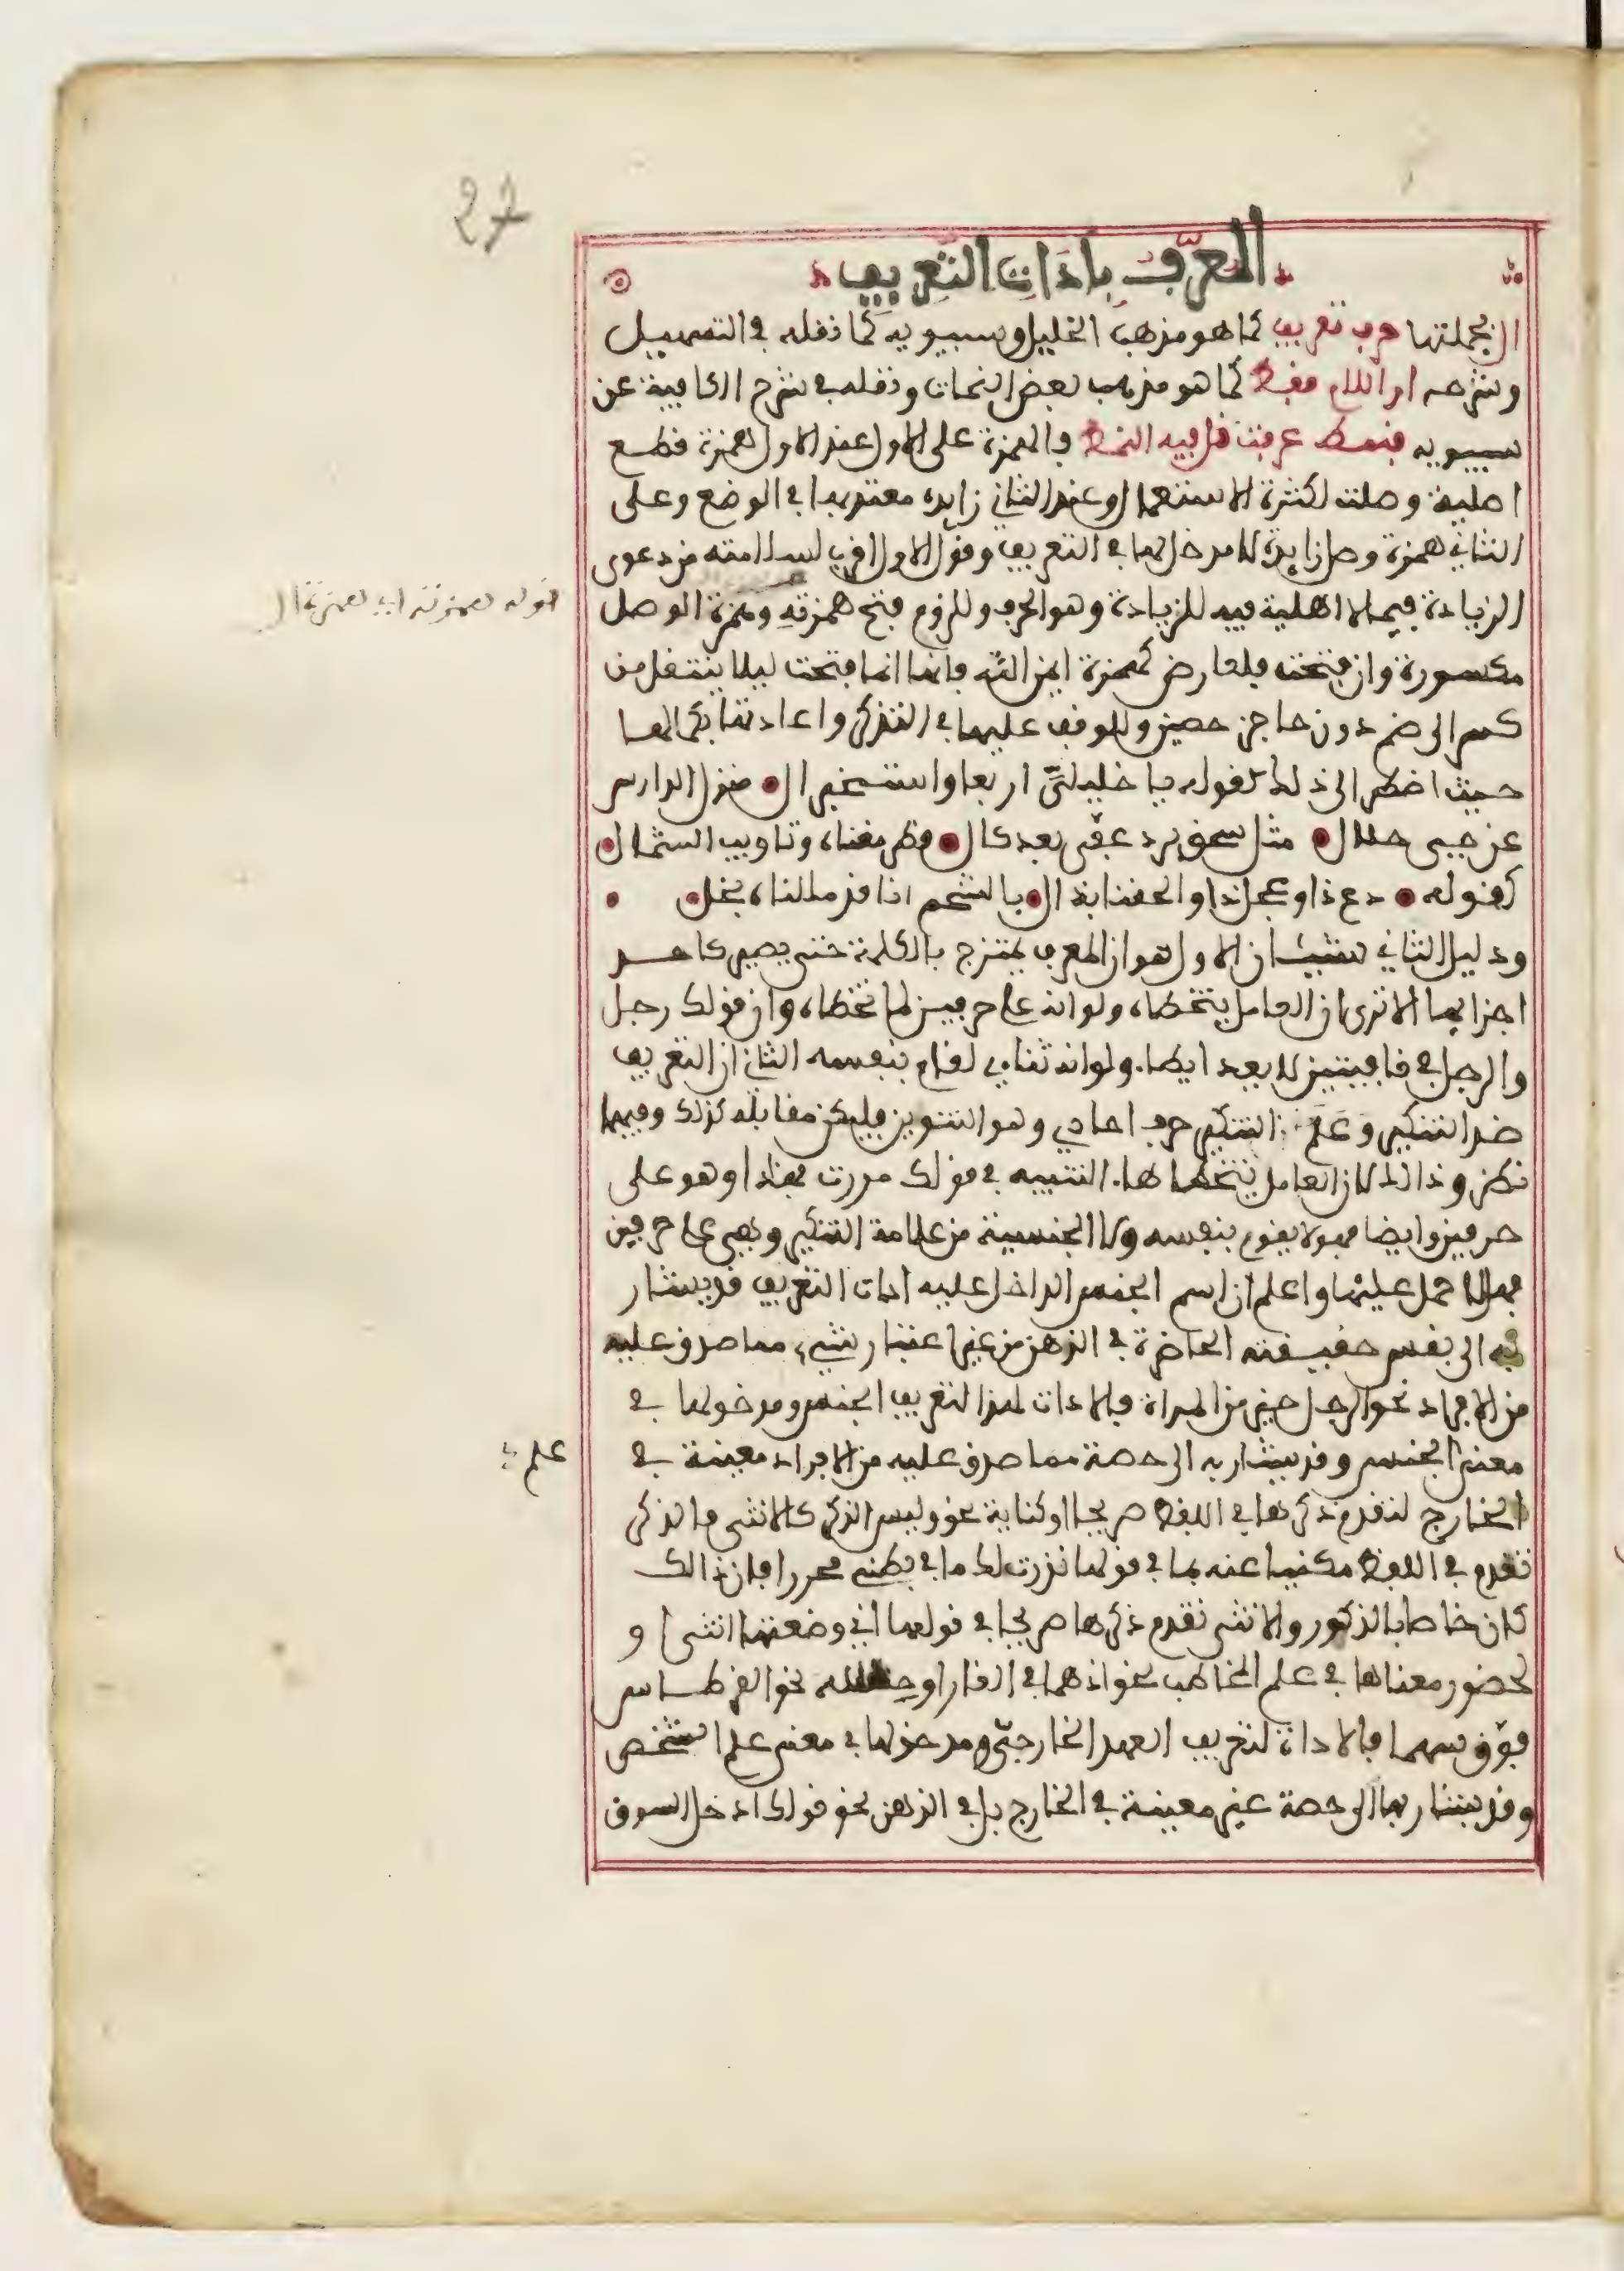 27
المعرف بادات التعريف
ال بجملتها حرف تعريف كما هو مذهب الخليل وسيبويه كما نقله في التسهيل
وشرحه او اللام فقط كما هو مذهب بعض النحات ونقله في شرح الكافية عن
سيبويه فنمط عرفت قل فيه النمط فالهمزة على الاول عند الاول همزة قطع
اصلية وصلت لكثرة الاستعمال وعند الثاني زايدة معتد بها في الوضع وعلى
الثاني همزة وصل زايدة لا مدخل لها في التعريف وقول الاول اقرب لسلامته من دعوى
الزيادة فيما لا اهلية فيه للزيادة وهو الحرف وللزوم فتح همزته وهمزة الوصل
قوله همزته اي همزة ال
مكسورة وان فتحت فلعارض كهمزة ايمن الله فانها انما فتحت ليلا ينتقل من
كسر الى ضم دون حاجز حصين وللوقف عليها في التذكر واعادتها بكمالها
حيث اضطر الى ذلك كقوله يا خليلي اربعا واستخبرا ال منزل الدارس
عن حيى حلال مثل سحق برد عفى بعدك ال قطر مغناه وتاويب الشمال
كقوله دع ذا وعجل ذا والحقنا بذا ال بالشحم انا قد مللناه بجل
ودليل الثاني شيئان الاول هو ان المعرف يمتزج بالكلمة حتى يصير كاحد
اجزايها الا ترى ان العامل يتخطاه ولو انه على حرفين لما تخطاه وان قولك رجل
والرجل في قافيتين لا يعد ايطا ولو انه ثناءي لقام بنفسه الثاني ان التعريف
ضد التنكير وعلم التنكير حرف احادي وهو التنوين فليكن مقابله كذلك وفيهما
نظر وذالك لان العامل يتخطا ها التنبيه في قولك مررت بهذا وهو على
حرفين وايضا فهو لا يقوم بنفسه ولا الجنسية من علامة التنكير وهي على حرفين
فهلا حمل عليها واعلم ان اسم الجنس الداخل عليه ادات التعريف قد يشار
به الى نفس حقيقته الحاضرة في الذهن من غير اعتبار شيء مما صدق عليه
من الافراد نحو الرجل خير من المراة فالادات لهذا لتعريف الجنس ومدخولها في
معنى الجنس وقد يشار به الى حصة مما صدق عليه من الافراد معينة في
علم
الخارج لتقدم ذكرها في اللفظ صريحا او كناية نحو وليس الذكر كالانثى فالذكر
تقدم في اللفظ مكنيا عنه بما في قولها نذرت لك ما في بطني محررا فان ذالك
كان خاصا بالذكور والانثى تقدم ذكرها صريحا في قولها اني وضعتها انثى او
لحضور معناها في علم المخاطب نحو اذ هما في الغار او حسه نحو القرطاس
فوق سهما فالاداة لتعريف العهد الخارجي ومدخولها في معنى علم الشخص
وقد يشار بها الى حصة غير معينة في الخارج بل في الذهن نحو قولك ادخل السوق